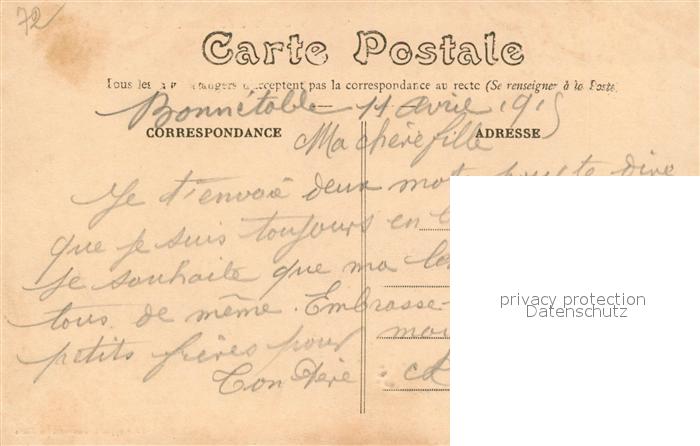 72
Carte Postale
Tous les étrangers n'acceptent pas la correspondance au recto (Se renseigner à la Poste)
Bonnétable 11 avril 1915
CORRESPONDANCE
ADRESSE
Ma chère fille
Je t'envoie deux mot pour te dire
que je suis toujours en
Je souhaite que ma
tous de même. Embrasse-
petits frères pour moi
Ton Père
privacy protection
Datenschutz